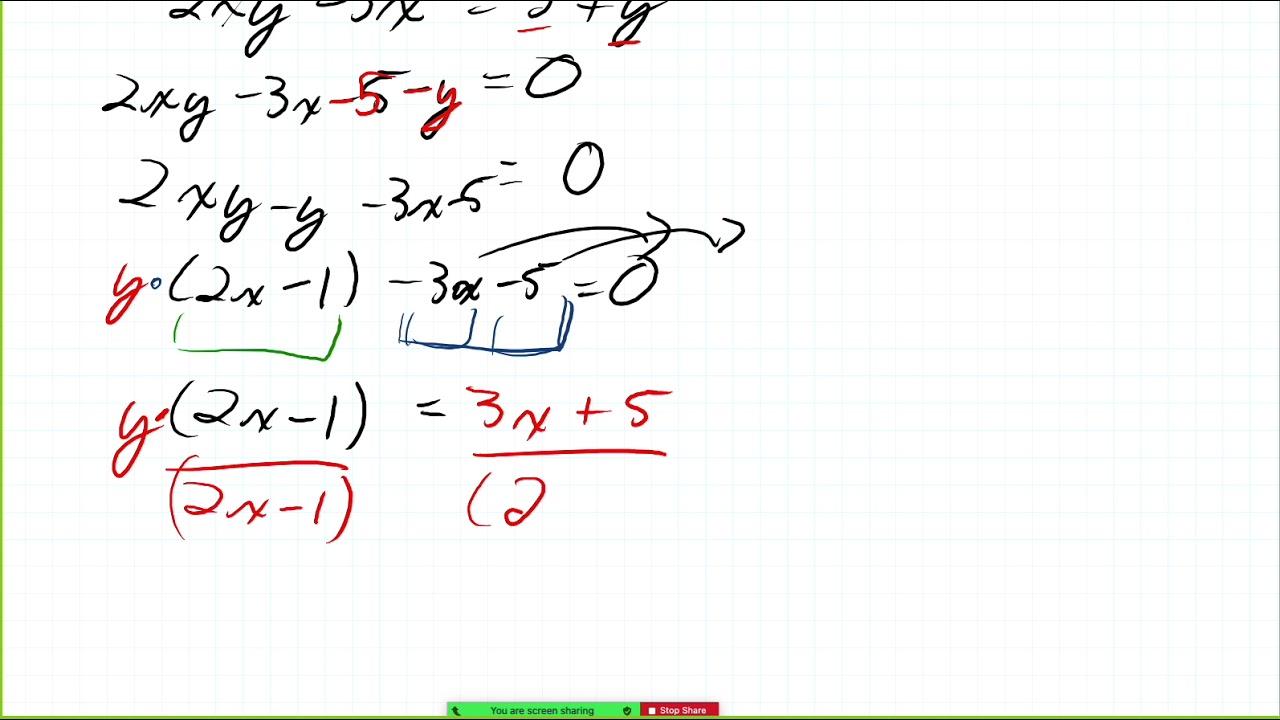 2xy - 3x = 5 + y
2xy - 3x - 5 - y = 0
2xy - y - 3x - 5 = 0
y · (2x - 1) - 3x - 5 = 0
y · (2x - 1) = 3x + 5
(2x - 1) (2
You are screen sharing Stop Share